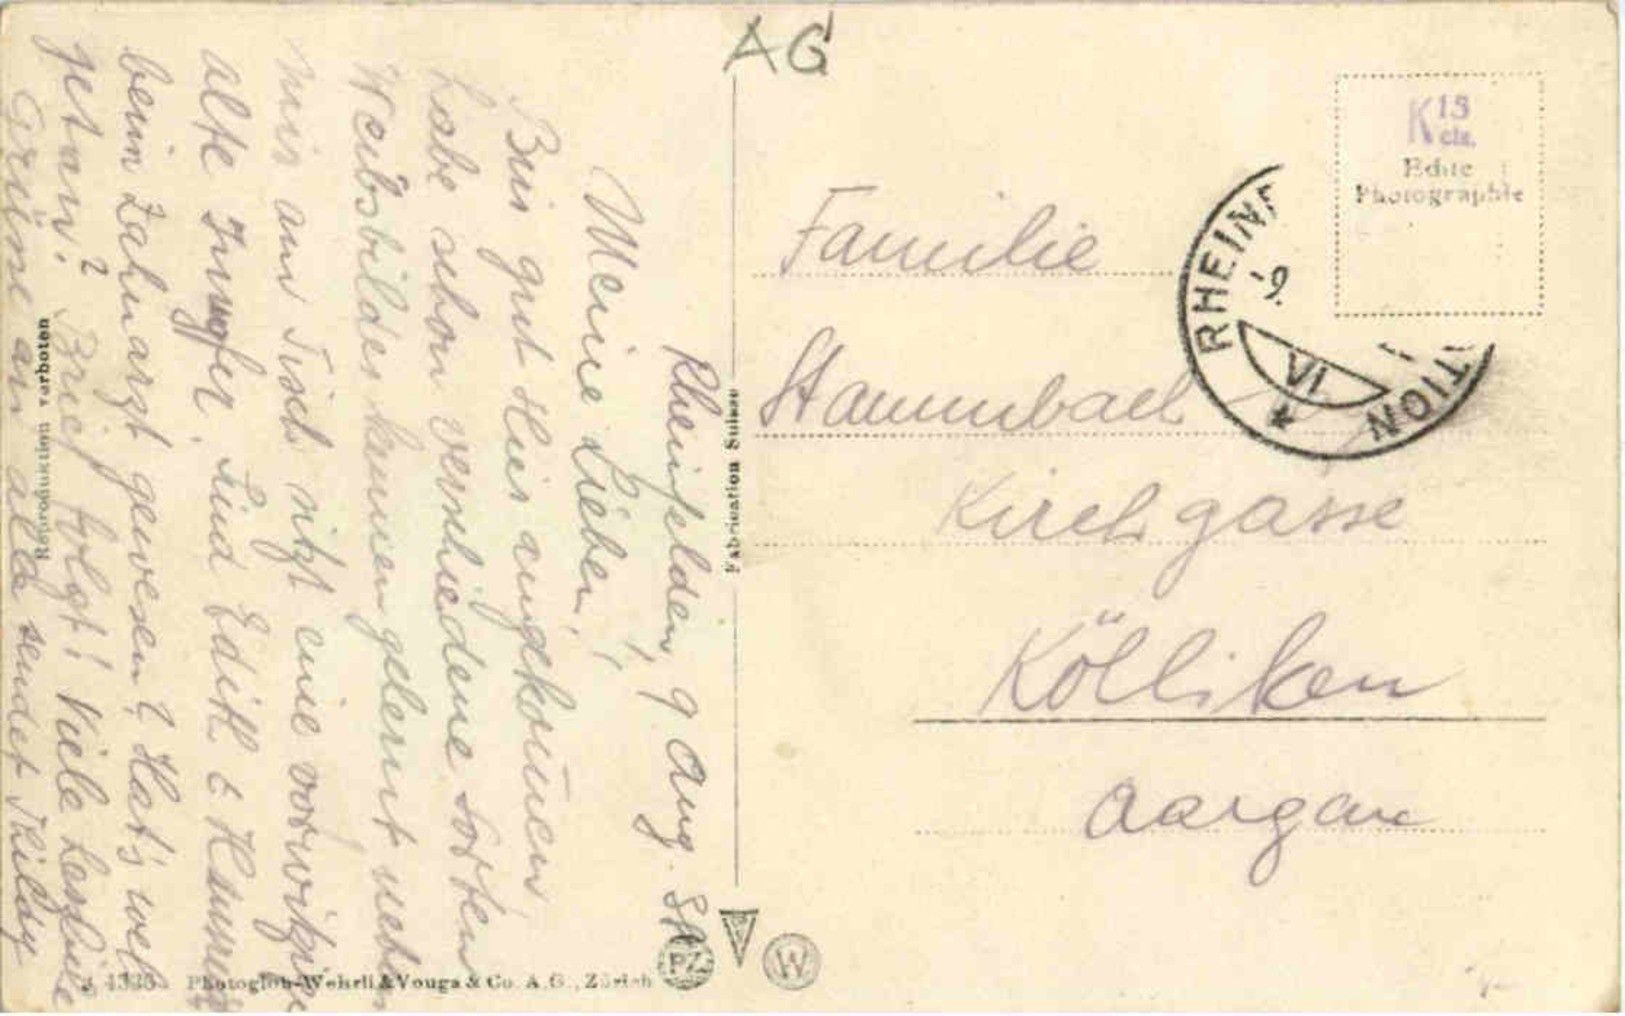 AG
Rheinfelden, 9 Aug. 38
Meine Lieben!
Bin gut hier angekommen,
habe schon verschiedene Sorten
Weibsbilder kennen gelernt neben
mir am Tisch sitzt eine vorwitzige
alte Jungfer. Sind Edith &
beim Zahnarzt gewesen? Hat's weh
getan? Brief folgt! Viele herzliche
Grüsse an alle sendet Thildy
Familie
Stammbach
Kirchgasse
Kölliken
Aargau
K 15 cts.
Echte
Photographie
RHEINF
-9.
VI
TION
Fabrication Suisse
Reproduktion verboten
Photoglob-Wehrli & Vouga & Co. A.G., Zürich
PZ
W